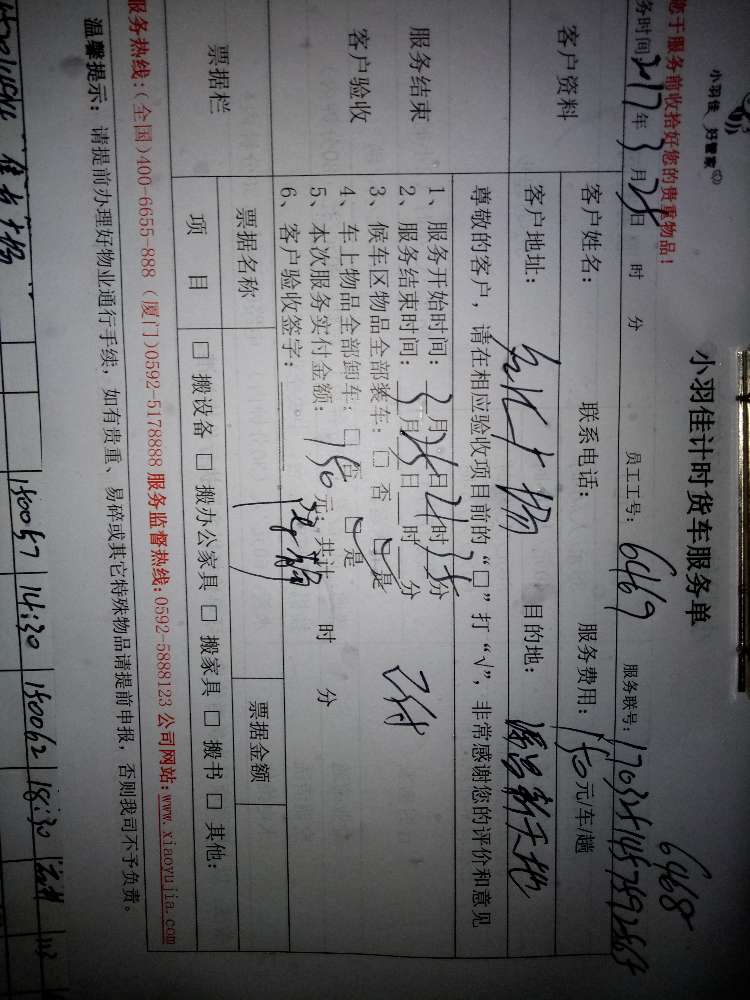 小羽佳 好管家
小羽佳计时货车服务单
您于服务前收拾好您的贵重物品！
务时间2017年3月28日 时 分 员工工号：6469 服务联号：
6468
客户资料
客户姓名： 联系电话： 服务费用：150元/车/趟
客户地址： 目的地：源昌新天地
服务结束
客户验收
尊敬的客户，请在相应验收项目前的“□”打“√”，非常感谢您的评价和意见
1、服务开始时间：3月28日 时 分
2、服务结束时间： 月 日 时 分
3、候车区物品全部装车：□ 否 □ 是
4、车上物品全部卸车：□ 否 □ 是
5、本次服务实付金额：150元；共计 时 分
6、客户验收签字：
已付
票据栏
票据名称 票据金额
项 目 □ 搬设备 □ 搬办公家具 □ 搬家具 □ 搬书 □ 其他：
服务热线：（全国）400-6655-888（厦门）0592-5178888 服务监督热线：0592-5888123 公司网站：www.xiaoyujia.com
温馨提示：请提前办理好物业通行手续，如有贵重、易碎或其它特殊物品请提前申报，否则我司不予负责。
150057 14:30 150062 18:30